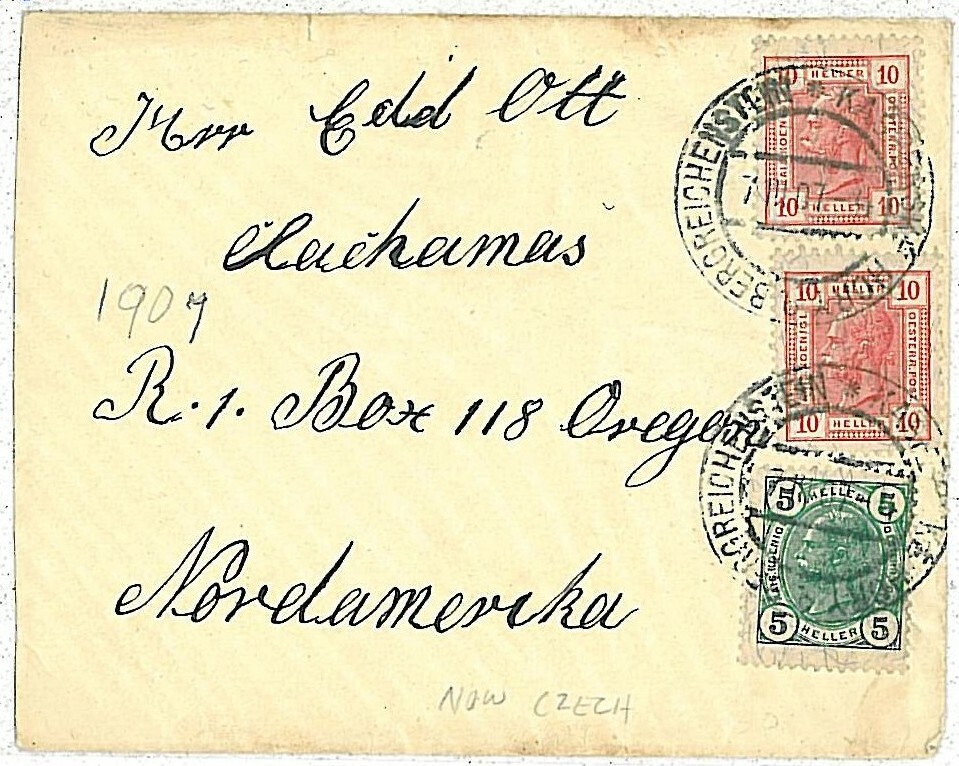 Herr Edd Ott
Clackamas
1907
R. 1. Box 118 Oregon
Nordamerika
NOW CZECH
10 HELLER 10
10 HELLER 10
BERGREICHENSTEIN * KA
7 07
10 HELLER 10
KOENIGL OESTERR. POST
10 HELLER 10
BERGREICHENSTEIN *
5 HELLER 5
5 HELLER 5